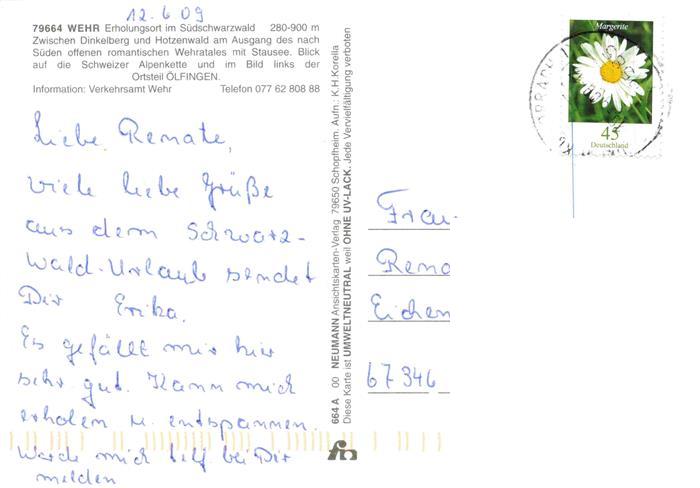 12.6.09
79664 WEHR Erholungsort im Südschwarzwald 280-900 m
Zwischen Dinkelberg und Hotzenwald am Ausgang des nach
Süden offenen romantischen Wehratales mit Stausee. Blick
auf die Schweizer Alpenkette und im Bild links der
Ortsteil ÖLFINGEN.
Information: Verkehrsamt Wehr Telefon 077 62 808 88
Liebe Renate,
viele liebe Grüße
aus dem Schwarz-
wald-Urlaub sendet
Dir Erika.
Es gefällt mir hier
sehr gut. Kann mich
erholen u. entspannen.
Werde mich telf. bei Dir
melden
664 A 00 NEUMANN Ansichtskarten-Verlag 79650 Schopfheim. Aufn.: K.H.Korella
Diese Karte ist UMWELTNEUTRAL weil OHNE UV-LACK. Jede Vervielfältigung verboten
Margerite
45
Deutschland
Frau
Rena
Eichen
67346